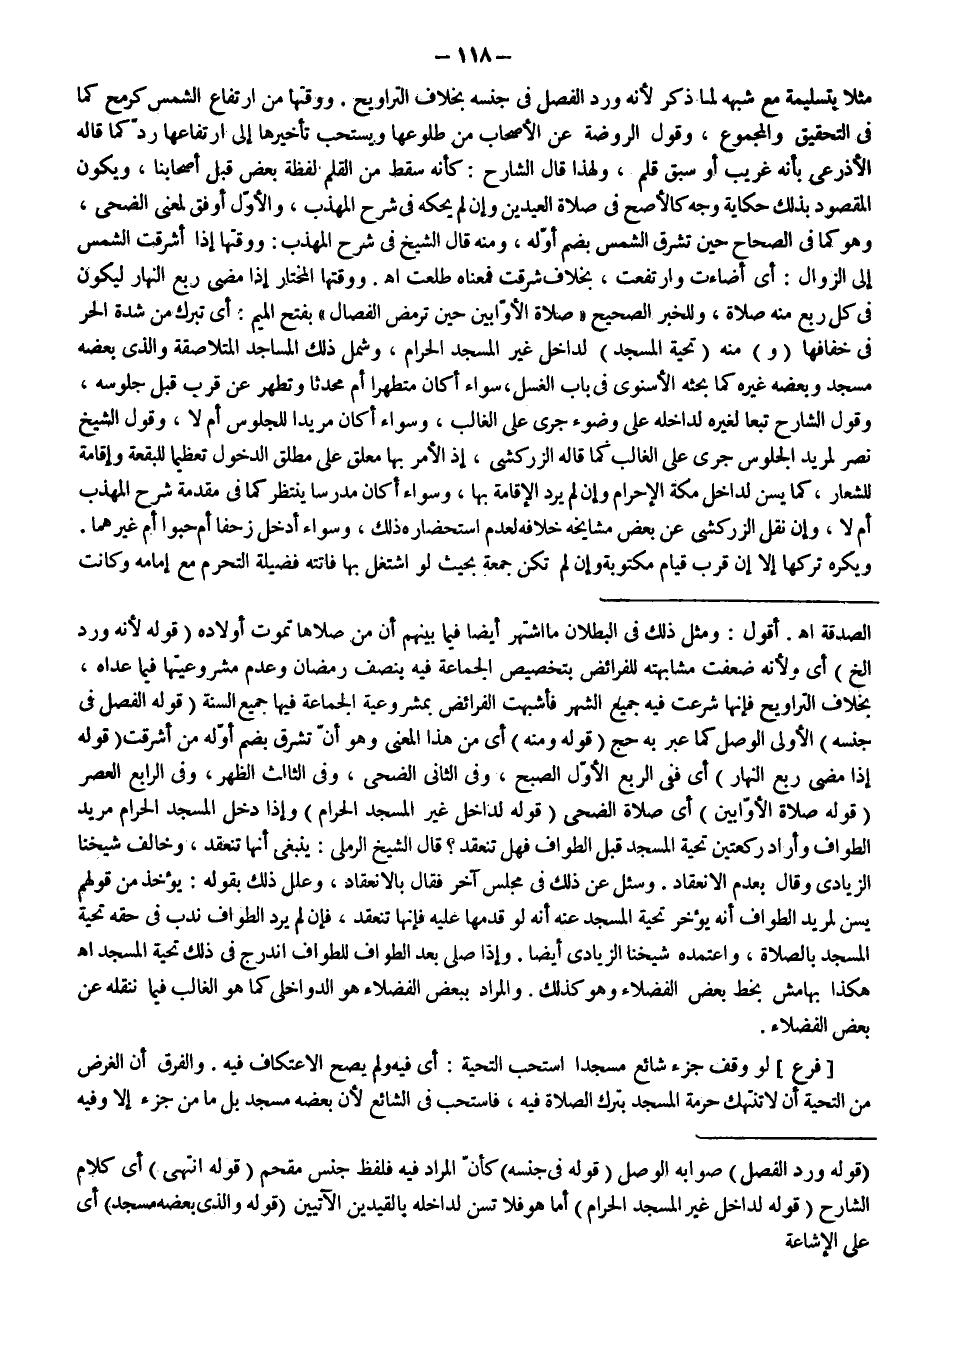 – ١١٨ –
مثلا يتسليمة مع شبهه لما ذكر لأنه ورد الفصل فى جنسه بخلاف التراويح . ووقتها من ارتفاع الشمس كرمح كما
فى التحقيق والمجموع ، وقول الروضة عن الأصحاب من طلوعها ويستحب تأخيرها إلى ارتفاعها ردّ كما قاله
الأذرعى بأنه غريب أو سبق قلم ، ولهذا قال الشارح : كأنه سقط من القلم لفظة بعض قبل أصحابنا ، ويكون
المقصود بذلك حكاية وجه كالأصح فى صلاة العيدين وإن لم يحكه فى شرح المهذب ، والأوّل أوفق لمعنى الضحى ،
وهو كما فى الصحاح حين تشرق الشمس بضم أوّله ، ومنه قال الشيخ فى شرح المهذب : ووقتها إذا أشرقت الشمس
إلى الزوال : أى أضاءت وارتفعت ، بخلاف شرقت فمعناه طلعت اه . ووقتها المختار إذا مضى ربع النهار ليكون
فى كل ربع منه صلاة ، وللخبر الصحيح « صلاة الأوّابين حين ترمض الفصال » بفتح الميم : أى تبرك من شدة الحر
فى خفافها ( و ) منه ( تحية المسجد ) لداخل غير المسجد الحرام ، وشمل ذلك المساجد المتلاصقة والذى بعضه
مسجد وبعضه غيره كما بحثه الأسنوى فى باب الغسل ، سواء أكان متطهرا أم محدثا وتطهر عن قرب قبل جلوسه ،
وقول الشارح تبعا لغيره لداخله على وضوء جرى على الغالب ، وسواء أكان مريدا للجلوس أم لا ، وقول الشيخ
نصر لمريد الجلوس جرى على الغالب كما قاله الزركشى ، إذ الأمر بها معلق على مطلق الدخول تعظيما للبقعة وإقامة
للشعار ، كما يسن لداخل مكة الإحرام وإن لم يرد الإقامة بها ، وسواء أكان مدرسا ينتظر كما فى مقدمة شرح المهذب
أم لا ، وإن نقل الزركشى عن بعض مشايخه خلافه لعدم استحضاره ذلك ، وسواء أدخل زحفا أم حبوا أم غيرهما .
ويكره تركها إلا إن قرب قيام مكتوبة وإن لم تكن جمعة بحيث لو اشتغل بها فاتته فضيلة التحرم مع إمامه وكانت
الصدقة اه . أقول : ومثل ذلك فى البطلان ما اشتهر أيضا فيما بينهم أن من صلاها تموت أولاده ( قوله لأنه ورد
الخ ) أى ولأنه ضعفت مشابهته للفرائض بتخصيص الجماعة فيه بنصف رمضان وعدم مشروعيتها فيما عداه ،
بخلاف التراويح فإنها شرعت فيه جميع الشهر فأشبهت الفرائض بمشروعية الجماعة فيها جميع السنة ( قوله الفصل فى
جنسه ) الأولى الوصل كما عبر به حج ( قوله ومنه ) أى من هذا المعنى وهو أنّ تشرق بضم أوّله من أشرقت ( قوله
إذا مضى ربع النهار ) أى فنى الربع الأوّل الصبح ، وفى الثانى الضحى ، وفى الثالث الظهر ، وفى الرابع العصر
( قوله صلاة الأوّابين ) أى صلاة الضحى ( قوله لداخل غير المسجد الحرام ) وإذا دخل المسجد الحرام مريد
الطواف وأراد ركعتين تحية المسجد قبل الطواف فهل تنعقد ؟ قال الشيخ الرملى : ينبغى أنها تنعقد ، وخالف شيخنا
الزيادى وقال بعدم الانعقاد . وسئل عن ذلك فى مجلس آخر فقال بالانعقاد ، وعلل ذلك بقوله : يؤخذ من قولهم
يسن لمريد الطواف أنه يؤخر تحية المسجد عنه أنه لو قدمها عليه فإنها تنعقد ، فإن لم يرد الطواف ندب فى حقه تحية
المسجد بالصلاة ، واعتمده شيخنا الزيادى أيضا . وإذا صلى بعد الطواف للطواف اندرج فى ذلك تحية المسجد اه
هكذا بهامش بخط بعض الفضلاء وهو كذلك . والمراد ببعض الفضلاء هو الدواخلى كما هو الغالب فيما ننقله عن
بعض الفضلاء .
[ فرع ] لو وقف جزء شائع مسجدا استحب التحية : أى فيه ولم يصح الاعتكاف فيه . والفرق أن الغرض
من التحية أن لا تنتهك حرمة المسجد بترك الصلاة فيه ، فاستحب فى الشائع لأن بعضه مسجد بل ما من جزء إلا وفيه
(قوله ورد الفصل) صوابه الوصل ( قوله فى جنسه) كأنّ المراد فيه فلفظ جنس مقحم ( قوله انتهى ) أى كلام
الشارح ( قوله لداخل غير المسجد الحرام ) أما هو فلا تسن لداخله بالقيدين الآتيين (قوله والذى بعضه مسجد) أى
على الإشاعة